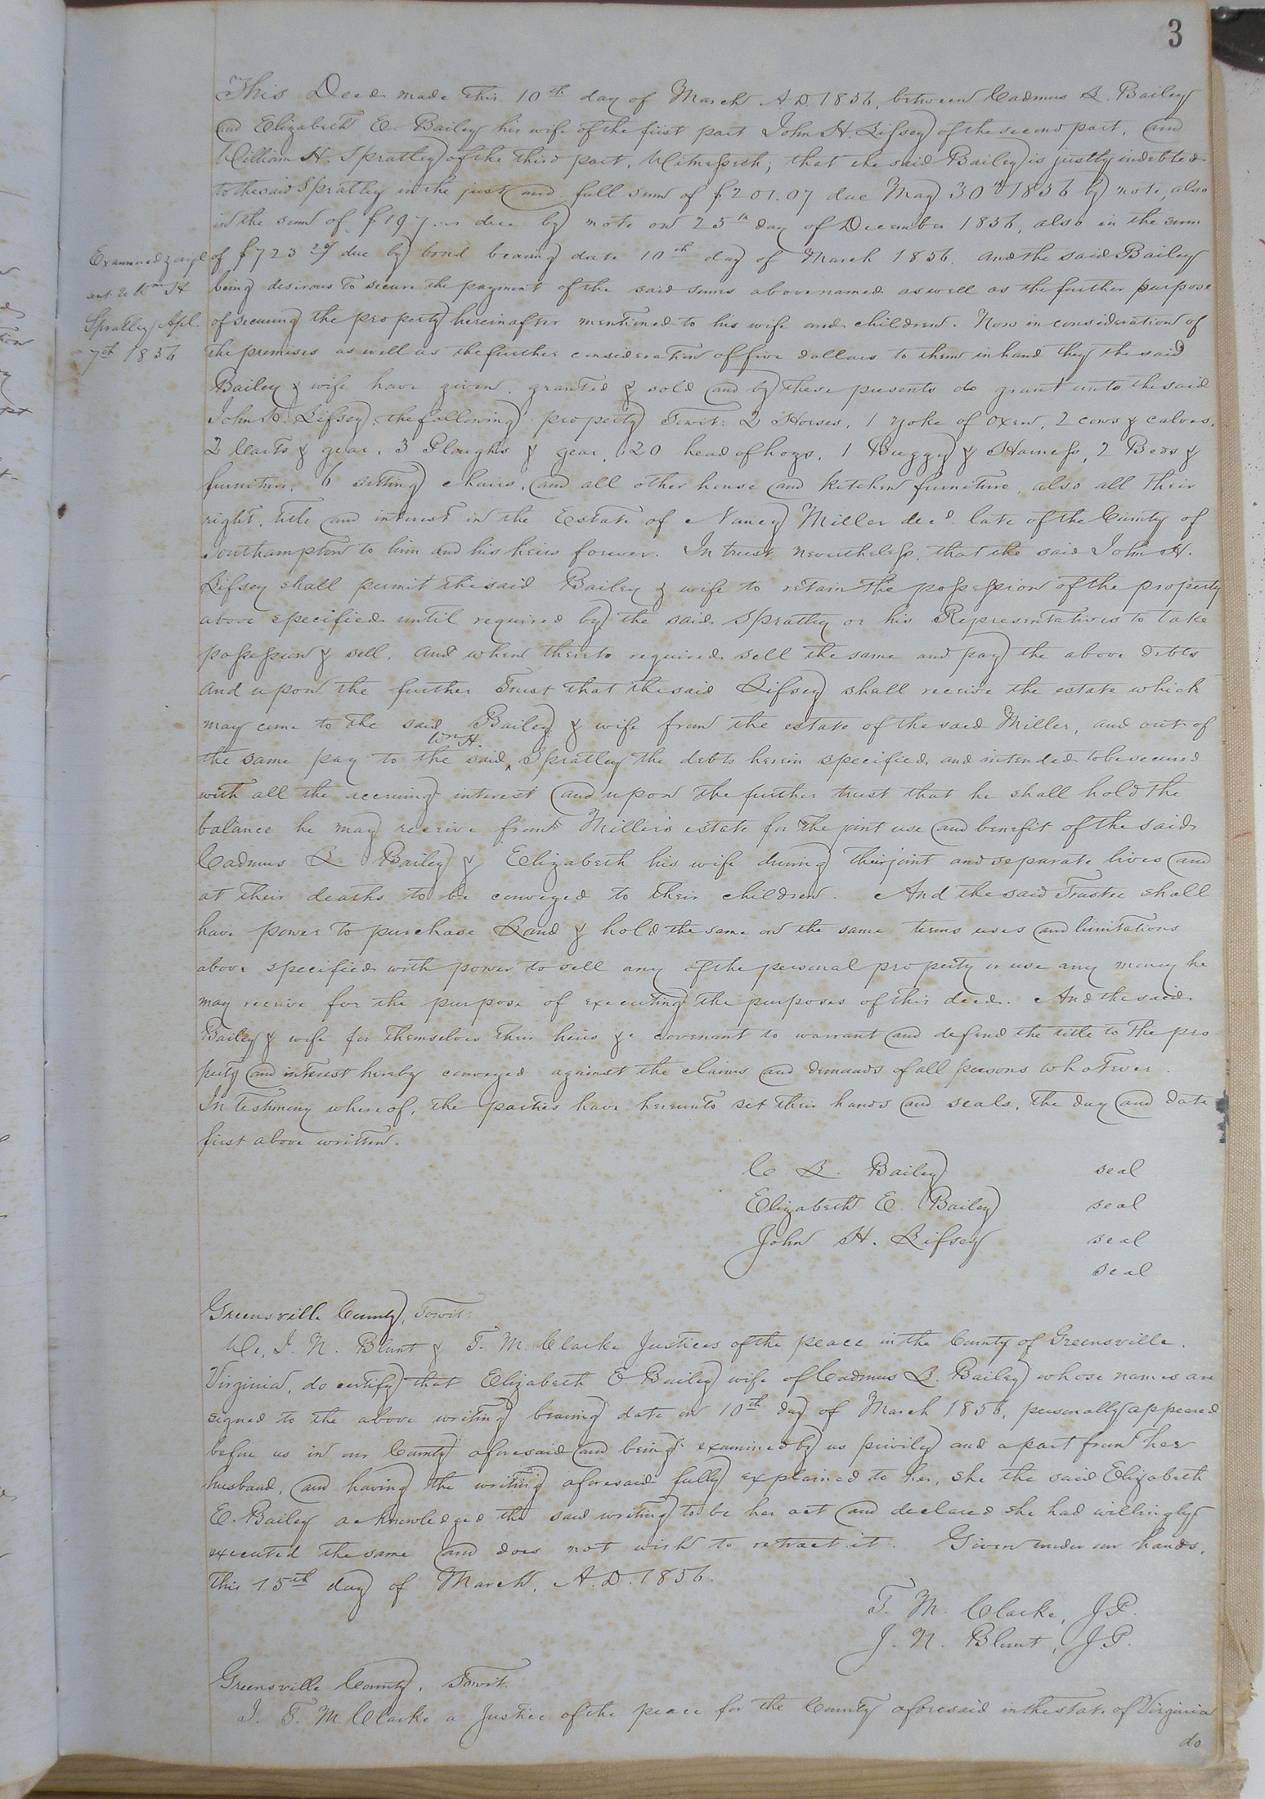 3
This Deed made this 10th day of March A.D. 1856, between Cadmus L. Bailey
and Elizabeth E. Bailey his wife of the first part John H. Lifsey of the second part, and
William H. Spratley of the third part, Witnesseth, that the said Bailey is justly indebted
to the said Spratley in the just and full sum of $201.07 due May 30th 1856 by note, also
in the sum of $197 due by note on 25th day of December 1856, also in the sum
of $723 29/ due by bond bearing date 10th day of March 1856. And the said Bailey
being desirous to secure the payment of the said sums above named as well as the further purpose
of securing the property hereinafter mentioned to his wife and children. Now in consideration of
the premises as well as the further consideration of five dollars to them in hand they the said
Bailey & wife have given granted & sold and by these presents do grant unto the said
John H. Lifsey, the following property Towit: 2 Horses, 1 yoke of oxen, 2 cows & calves,
2 Carts & gear, 3 Ploughs & gear, 20 head of hogs, 1 Buggy & Harness, 2 Beds &
furniture, 6 sitting chairs, and all other house and kitchen furniture, also all their
right, title and interest in the Estate of Nancy Miller decd. late of the County of
Southampton to him and his heirs forever. In trust nevertheless, that the said John H.
Lifsey shall permit the said Bailey & wife to retain the possession of the property
above specified until required by the said Spratley or his Representatives to take
possession & sell. And when thereto required sell the same and pay the above debts
And upon the further Trust that the said Lifsey shall receive the estate which
may come to the said Bailey & wife from the estate of the said Miller, and out of
the same pay to the said ^ Wm H. Spratley the debts herein specified and intended to be secured
with all the accruing interest and upon the further trust that he shall hold the
balance he may receive from Miller's estate for the joint use and benefit of the said
Cadmus L. Bailey & Elizabeth his wife during their joint and separate lives and
at their deaths to be conveyed to their children. And the said Trustee shall
have power to purchase Land & hold the same on the same terms uses and limitations
above specified with power to sell any of the personal property or use any money he
may receive for the purpose of executing the purposes of this deed. And the said
Bailey & wife for themselves their heirs &c covenant to warrant and defend the title to the pro
perty and interest hereby conveyed against the claims and demands of all persons whatever.
In testimony whereof, the parties have hereunto set their hands and seals, the day and date
first above written.
C L. Bailey seal
Elizabeth E. Bailey seal
John H. Lifsey seal
seal
Examined & orgl
sent to Wm H
Spratley, Apl.
7th 1856
Greensville County, Towit:
We, J. N. Blunt & T. M. Clarke Justices of the peace in the County of Greensville,
Virginia, do certify that Elizabeth E Bailey wife of Cadmus L. Bailey whose names are
signed to the above writing bearing date on 10th day of March 1856, personally appeared
before us in our County aforesaid and being examined by us privily and apart from her
husband, and having the writing aforesaid fully explained to her, she the said Elizabeth
E. Bailey acknowledged the said writing to be her act and declared she had willingly
executed the same and does not wish to retract it. Given under our hands,
this 15th day of March, A.D. 1856.
T. M. Clarke, J.P.
J. N. Blunt, J.P.
Greensville County, Towit:
I, T. M. Clarke a Justice of the peace for the County aforesaid in the state of Virginia
do